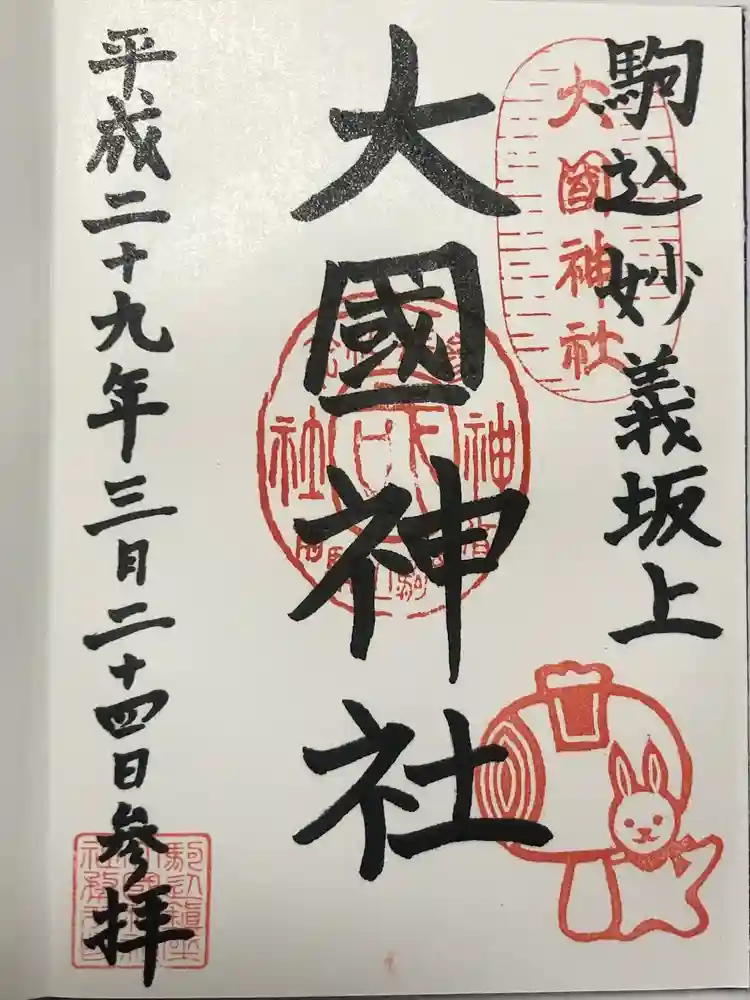 駒込妙義坂上
大國神社
大國神社
神
社
平成二十九年三月二十四日参拝